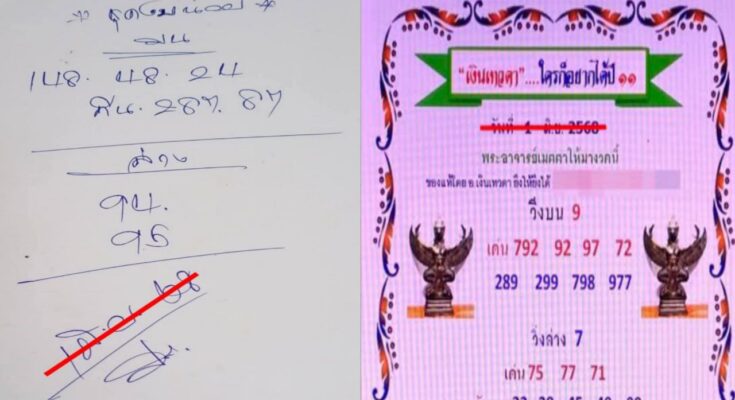 บน
148. 48. 24
287. 87
ล่าง
94.
95
"เงินเทวดา"....ใครก็อยากได้ปี ๑๑
วันที่ 1 มิ.ย. 2568
พระอาจารย์เมตตาให้มางวดนี้
ของแท้โดย อ.เงินเทวดา ยิ่งให้ยิ่งได้
วิ่งบน 9
เด่น 792 92 97 72
289 299 798 977
วิ่งล่าง 7
เด่น 75 77 71